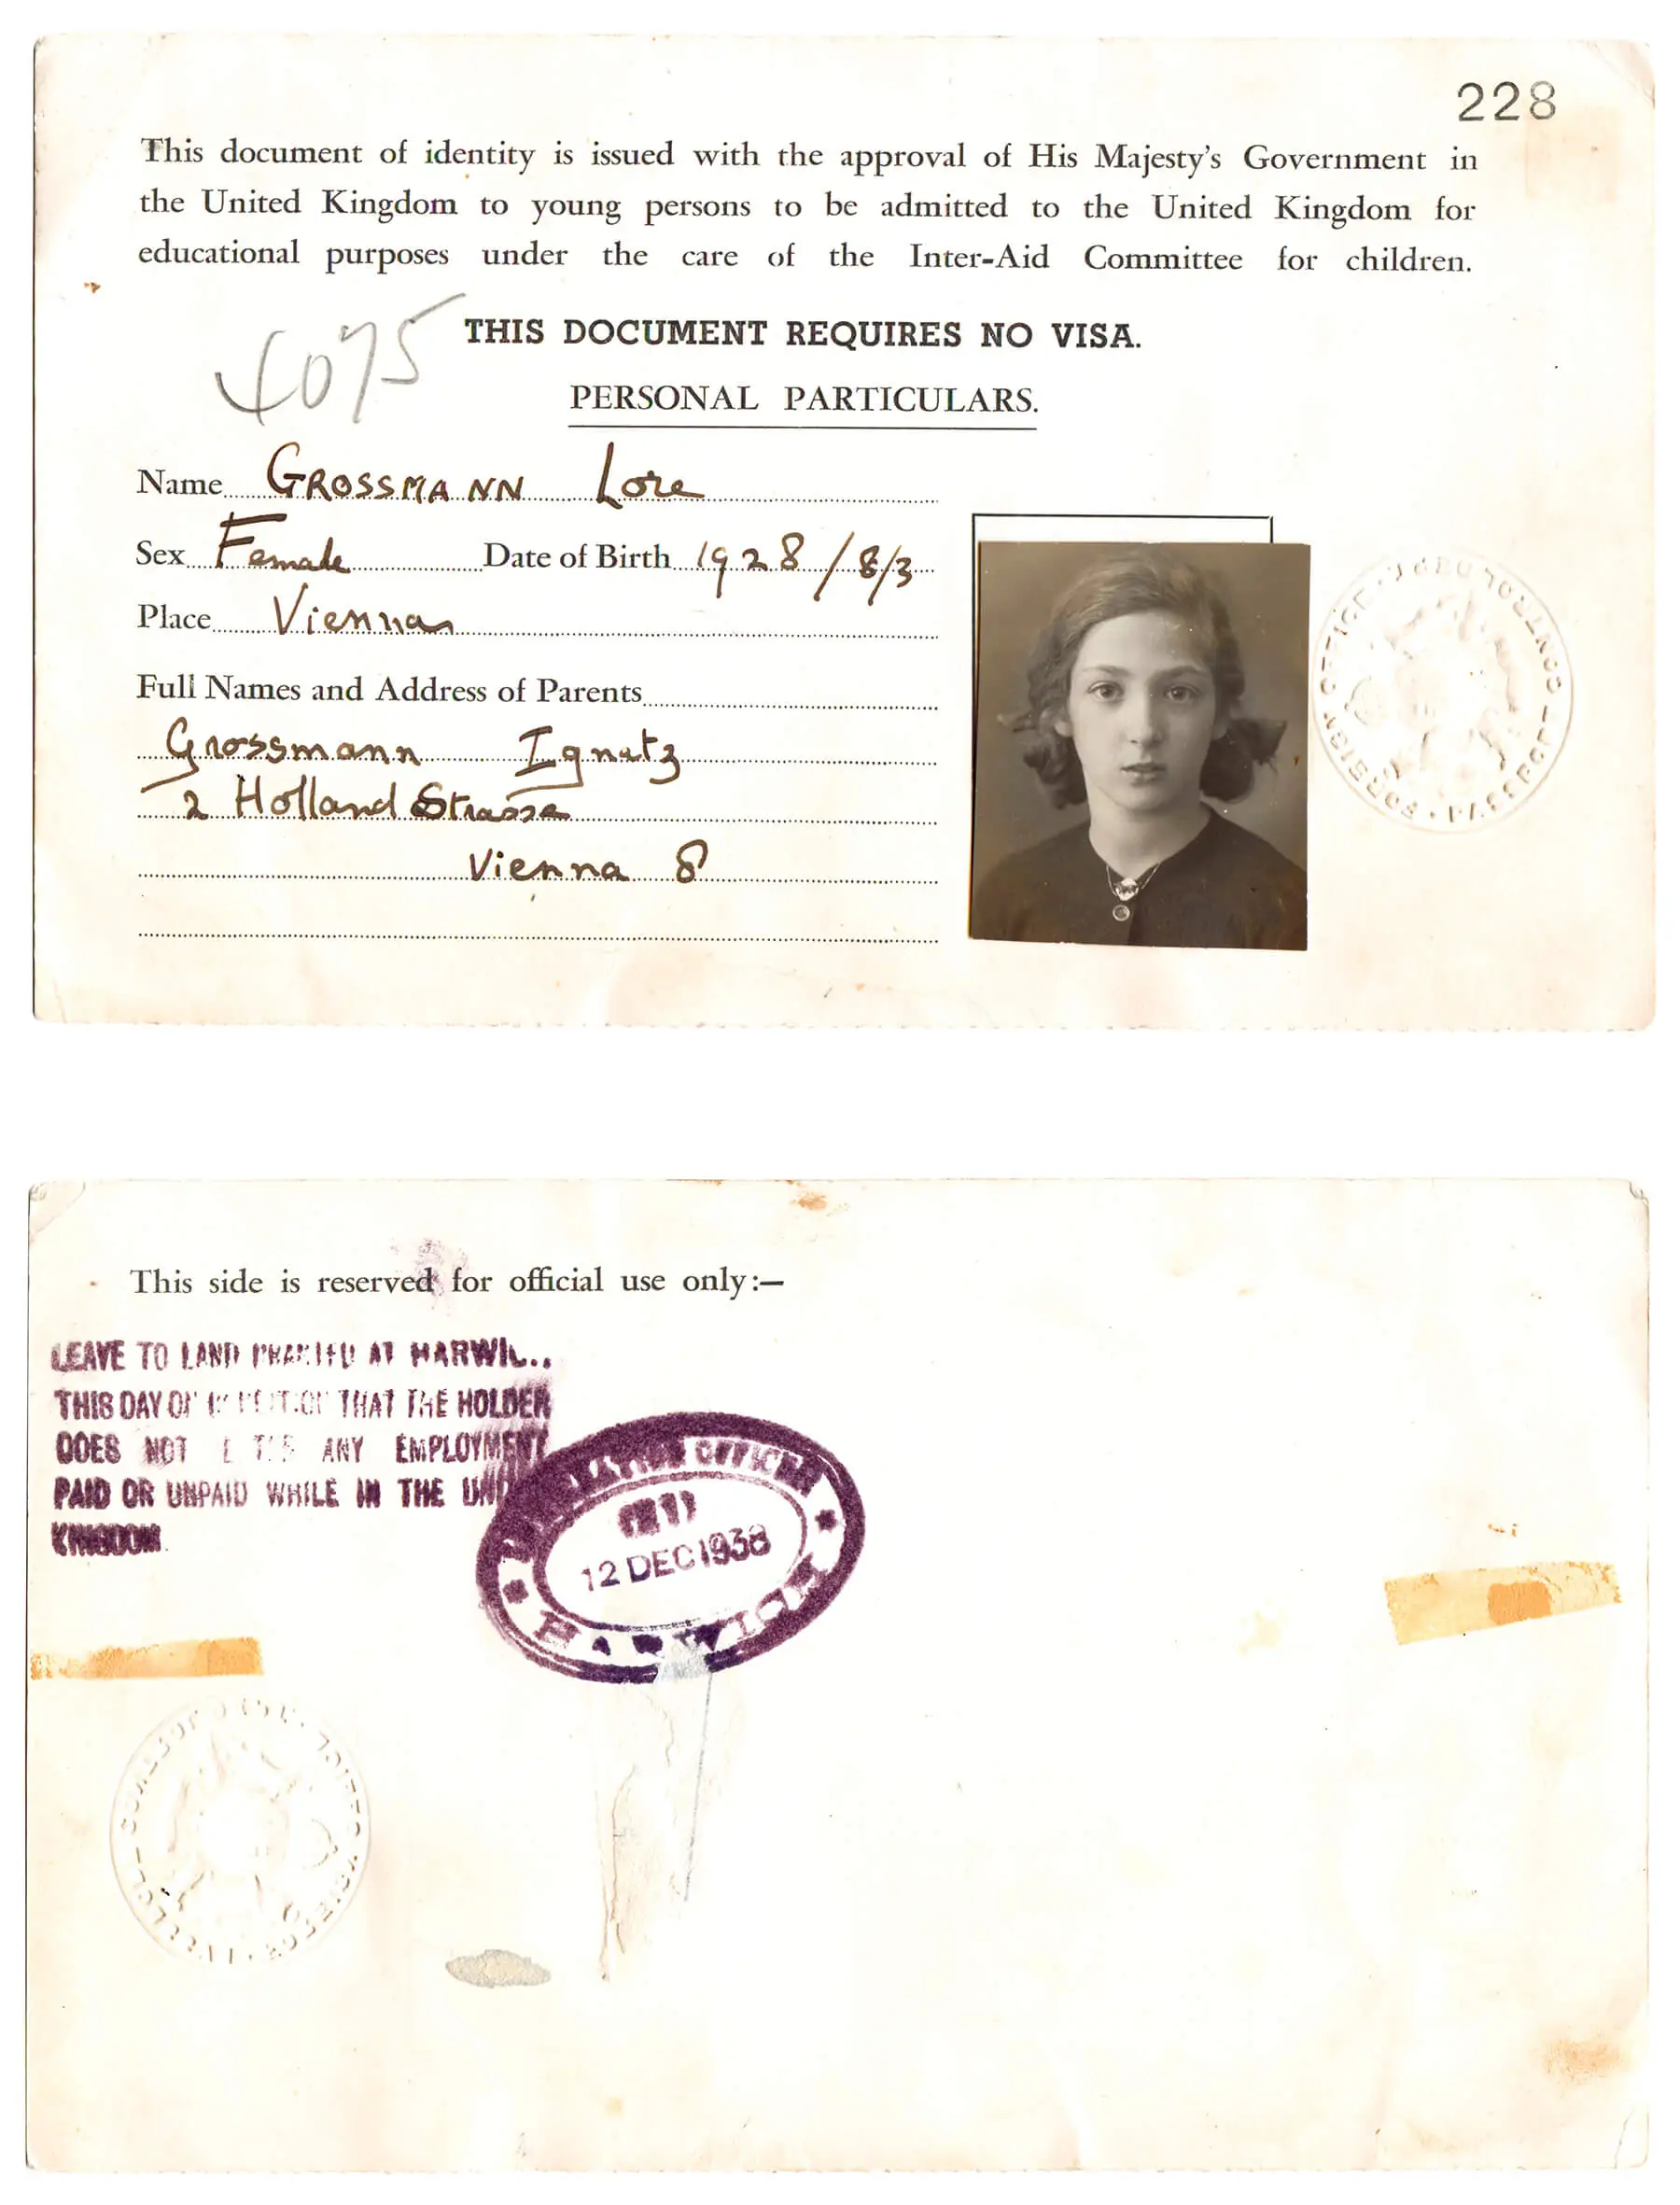 228
This document of identity is issued with the approval of His Majesty's Government in
the United Kingdom to young persons to be admitted to the United Kingdom for
educational purposes under the care of the Inter-Aid Committee for children.
4075
THIS DOCUMENT REQUIRES NO VISA.
PERSONAL PARTICULARS.
Name GROSSMANN Lore
Sex Female Date of Birth 1928/8/3
Place Vienna
Full Names and Address of Parents
Grossmann Ignatz
2 Holland Strasse
Vienna 8
FOREIGN OFFICE · PASSPORT CONTROL DEPT.
This side is reserved for official use only:—
LEAVE TO LAND GRANTED AT HARWICH
THIS DAY ON CONDITION THAT THE HOLDER
DOES NOT ANY EMPLOYMENT
PAID OR UNPAID WHILE IN THE UNITED
KINGDOM.
IMMIGRATION OFFICER
12 DEC 1938
HARWICH